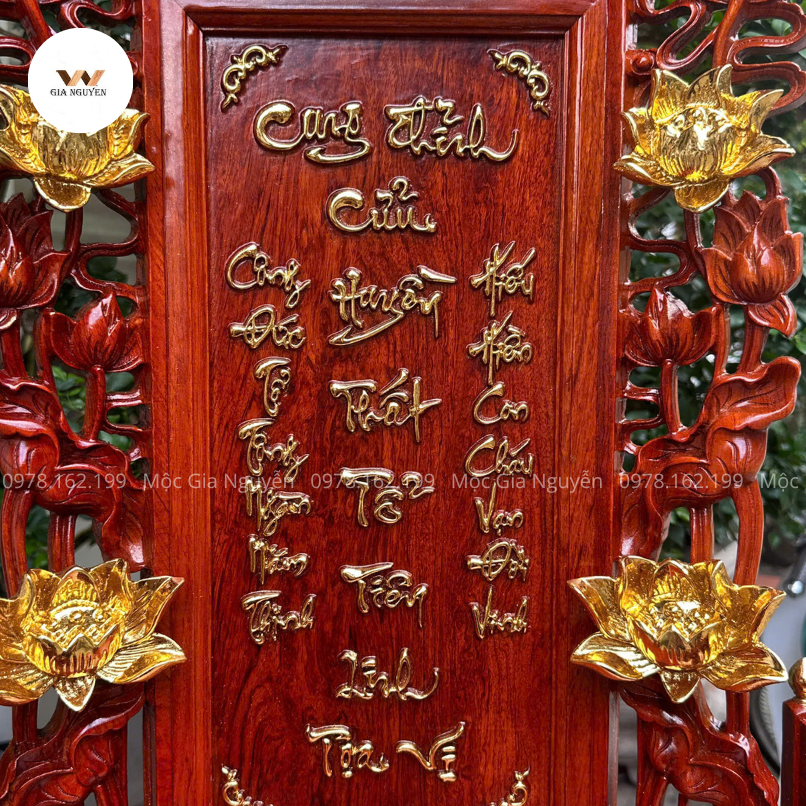 GIA NGUYEN
Cung thỉnh
Cửu
Huyền
Thất
Tổ
Tiên
Linh
Tọa Vị
Công
Đức
Tổ
Tông
Ngàn
Năm
Thịnh
Hiếu
Hiền
Con
Cháu
Vạn
Đời
Vinh
0978.162.199 Mộc Gia Nguyễn 0978.162.199 Mộc Gia Nguyễn 0978.162.199 Mộc